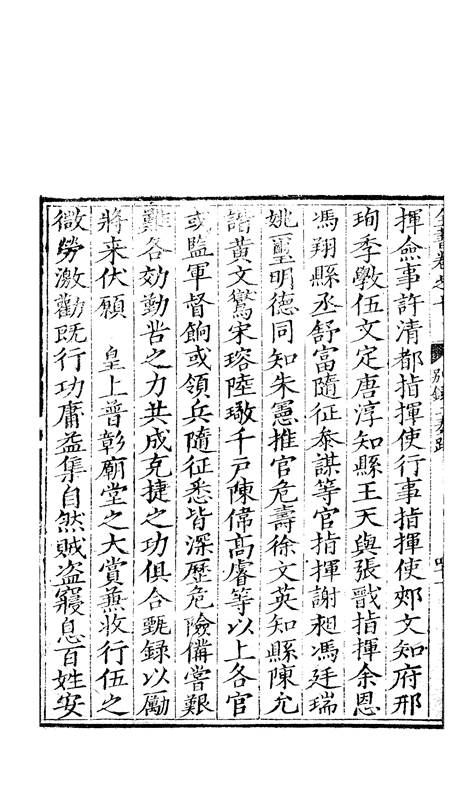 全書卷之十　別錄二奏疏　四十一
揮僉事許清都指揮使行事指揮使郟文知府邢
珣季斆伍文定唐淳知縣王天與張戩指揮余恩
馮翔縣丞舒富隨征叅謀等官指揮謝昶馮廷瑞
姚璽明德同知朱憲推官危壽徐文英知縣陳允
諧黃文鸑宋瑢陸璥千戶陳偉高睿等以上各官
或監軍督餉或領兵隨征悉皆深歷危險備嘗艱
難各効勤苦之力共成克捷之功俱合甄錄以勵
將来伏願　皇上普彰廟堂之大賞蒹收行伍之
微勞激勸既行功庸益集自然賊盗寢息百姓安